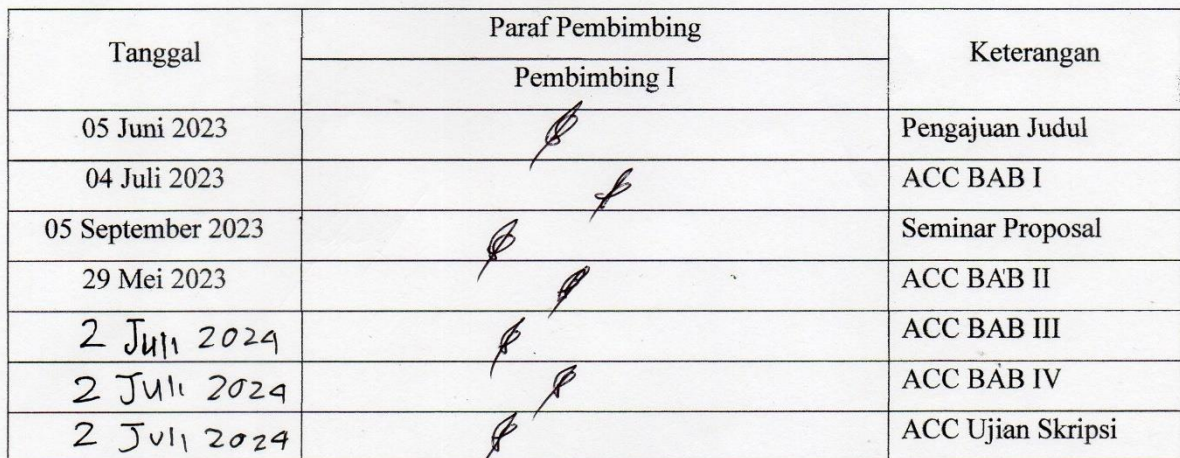 Tanggal Paraf Pembimbing Keterangan
Pembimbing I
05 Juni 2023 Pengajuan Judul
04 Juli 2023 ACC BAB I
05 September 2023 Seminar Proposal
29 Mei 2023 ACC BAB II
2 Juli 2024 ACC BAB III
2 Juli 2024 ACC BAB IV
2 Juli 2024 ACC Ujian Skripsi